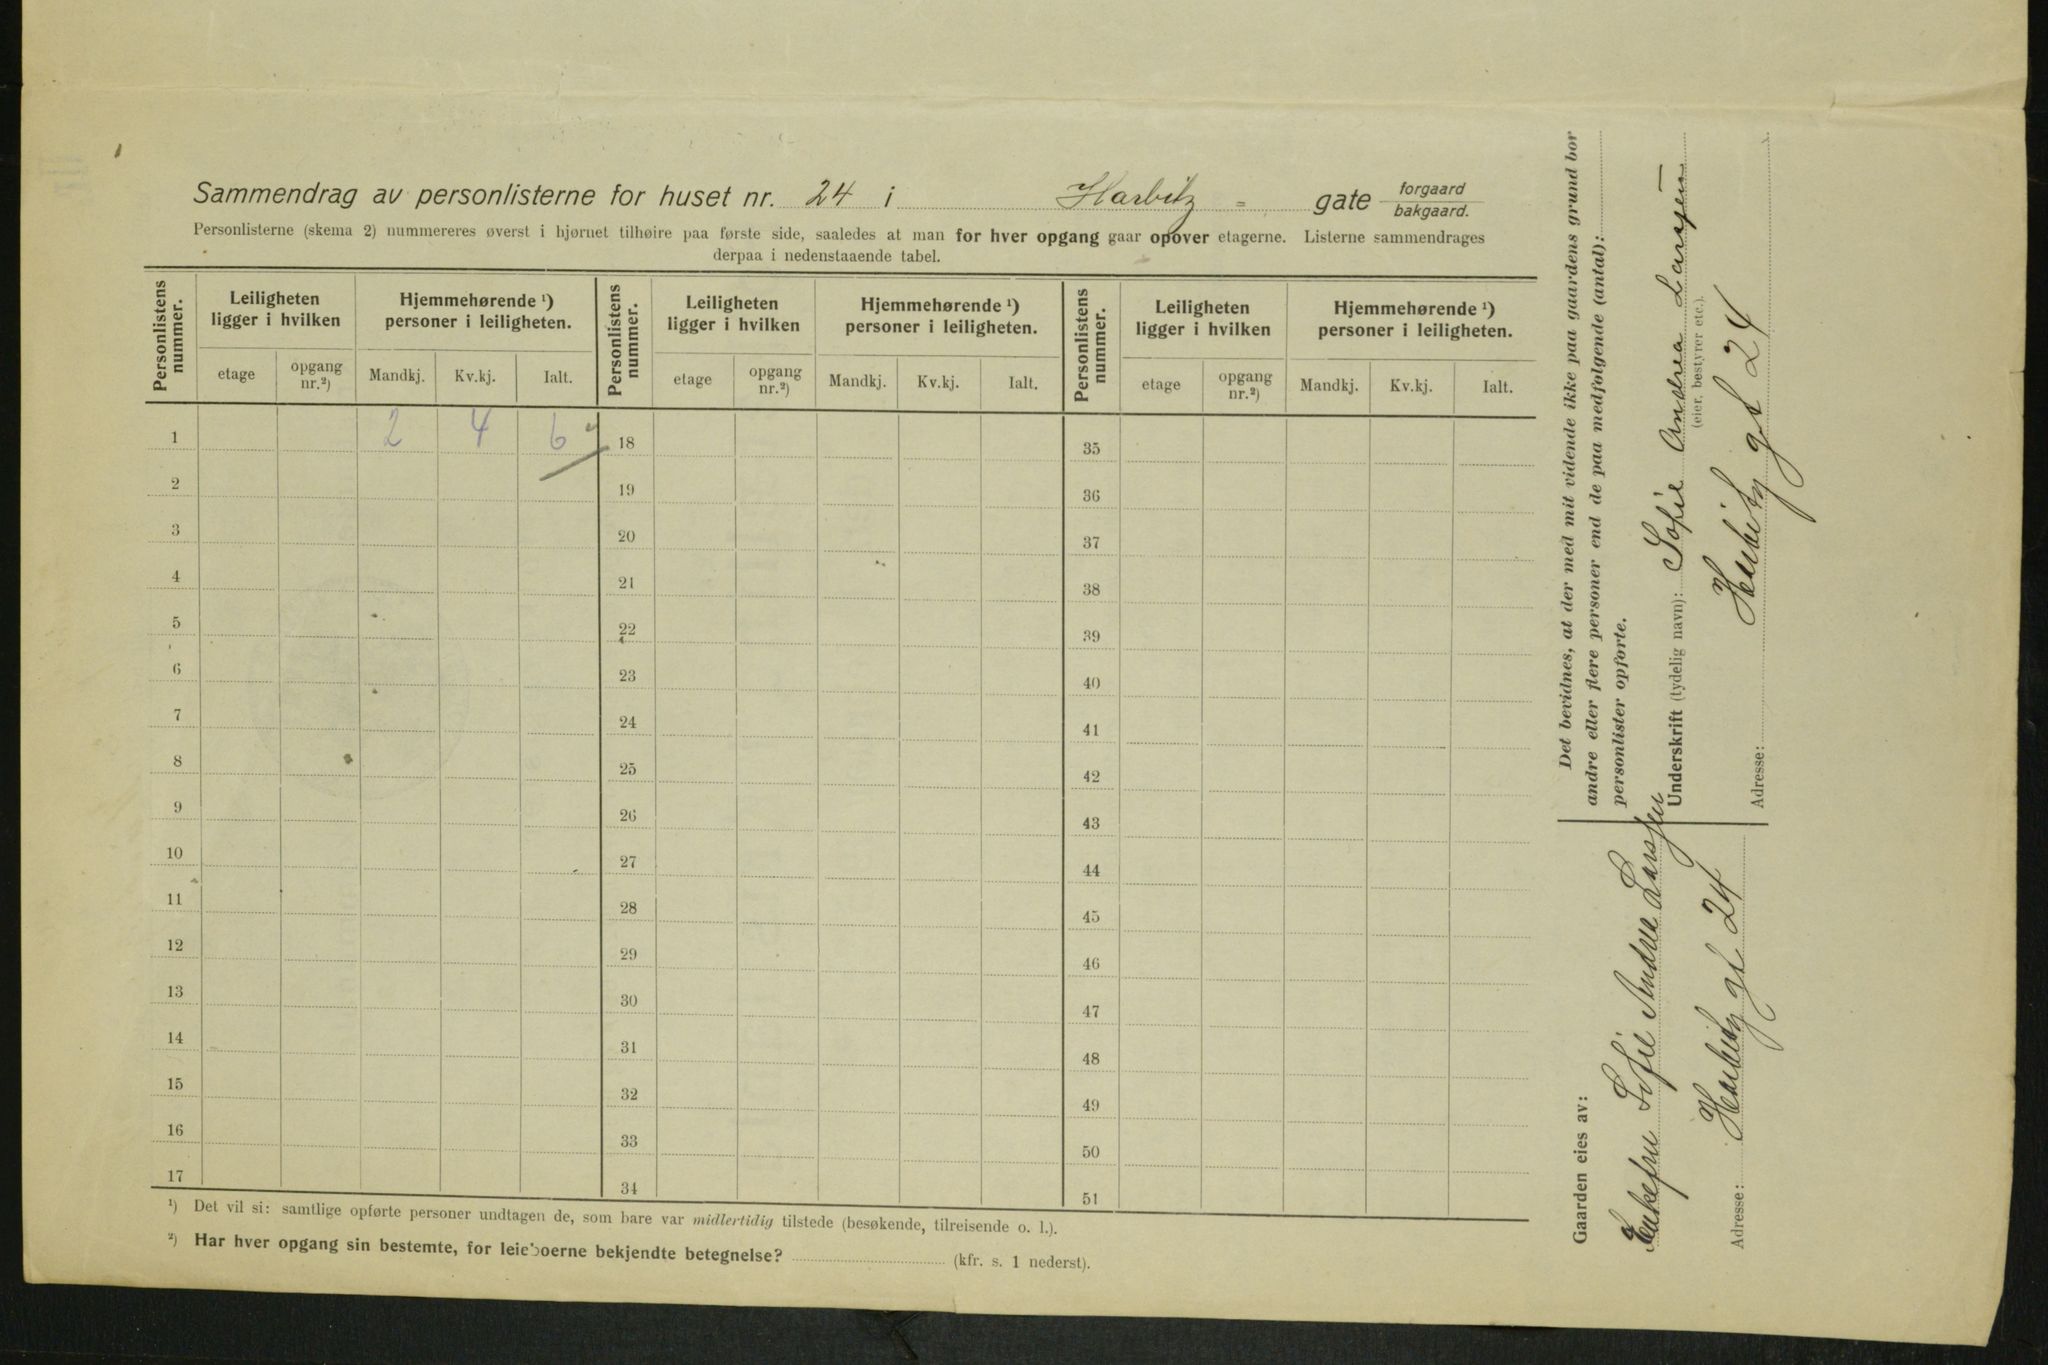 Sammendrag av personlisterne for huset nr. 24 i Harbitz - gate forgaard bakgaard.
Personlisterne (skema 2) nummereres øverst i hjørnet tilhøire paa første side, saaledes at man for hver opgang gaar opover etagerne. Listerne sammendrages
derpaa i nedenstaaende tabel.
Personlistens nummer. Leiligheten ligger i hvilken Hjemmehørende ¹) personer i leiligheten. Personlistens nummer. Leiligheten ligger i hvilken Hjemmehørende ¹) personer i leiligheten. Personlistens nummer. Leiligheten ligger i hvilken Hjemmehørende ¹) personer i leiligheten.
etage opgang nr.²) Mandkj. Kv.kj. Ialt. etage opgang nr.²) Mandkj. Kv.kj. Ialt. etage opgang nr.²) Mandkj. Kv.kj. Ialt.
1 2 4 6 18 35
2 19 36
3 20 37
4 21 38
5 22 39
6 23 40
7 24 41
8 25 42
9 26 43
10 27 44
11 28 45
12 29 46
13 30 47
14 31 48
15 32 49
16 33 50
17 34 51
¹) Det vil si: samtlige opførte personer undtagen de, som bare var midlertidig tilstede (besøkende, tilreisende o. l.).
²) Har hver opgang sin bestemte, for leieboerne bekjendte betegnelse? (kfr. s. 1 nederst).
Gaarden eies av:
Enkefru Sofie Andrea Larssen
Adresse: Harbitz gt 24
Det bevidnes, at der med mit vidende ikke paa gaardens grund bor
andre eller flere personer end de paa medfølgende (antal):
personlister opførte.
Underskrift (tydelig navn): Sofie Andrea Larssen
(eier, bestyrer etc.).
Adresse: Harbitz gt 24